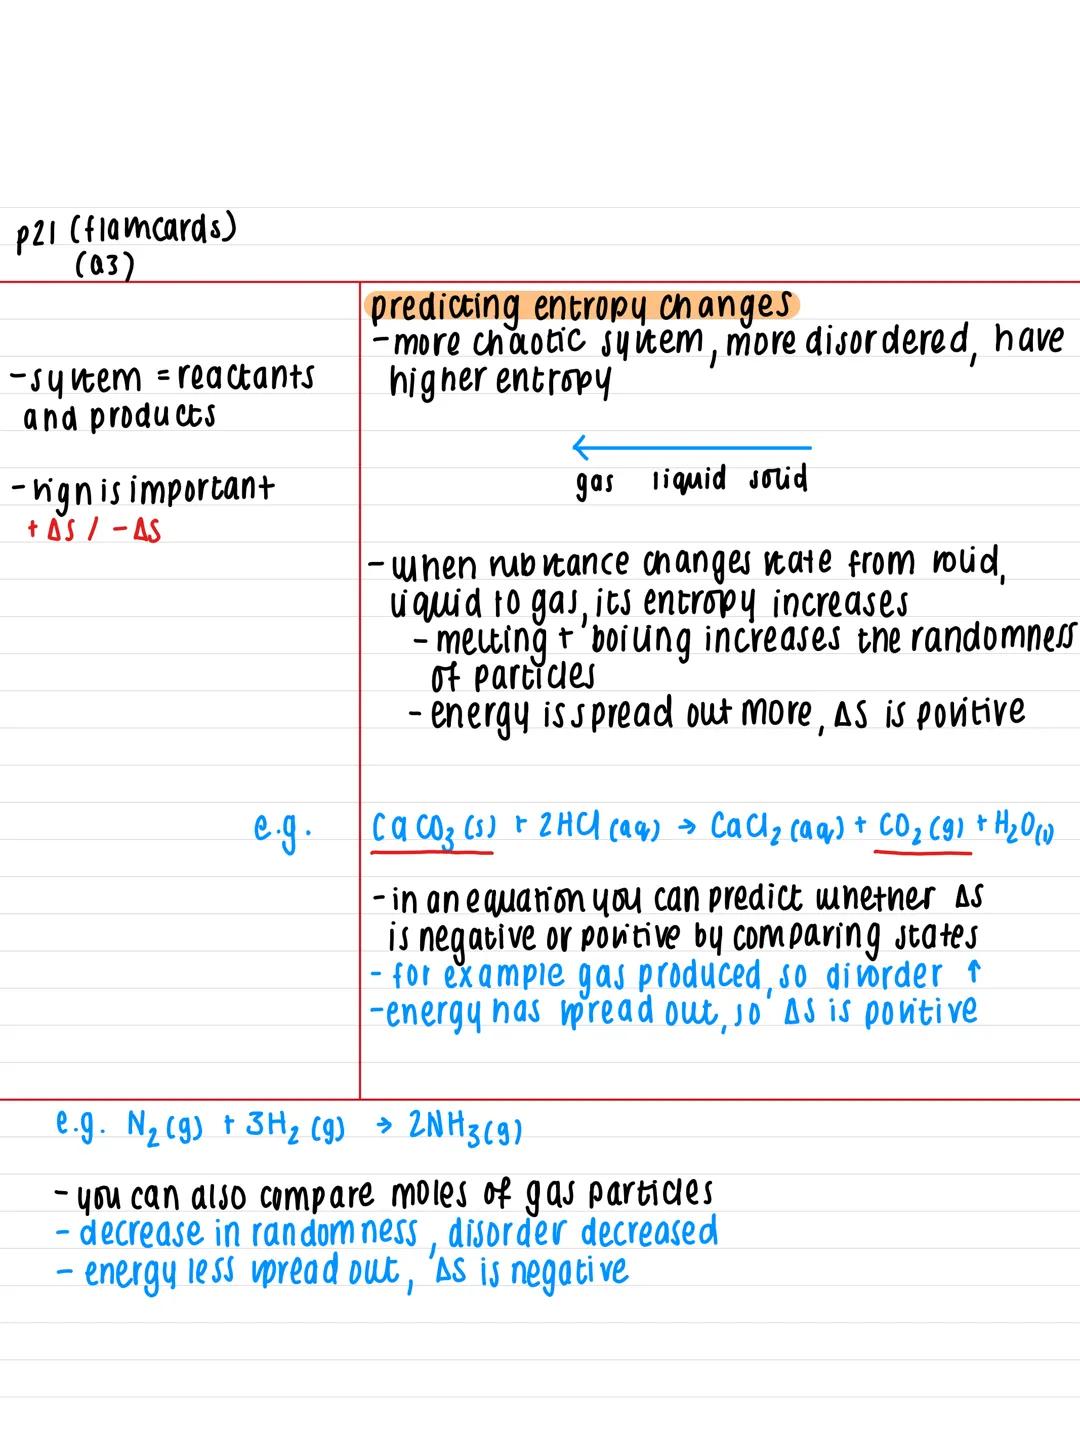 p21 (flamcards)
(a3)
predicting entropy changes
- more chaotic system, more disordered, have
higher entropy
- system = reactants
and products
gas liquid solid
- sign is important
+ ΔS / - ΔS
- when substance changes state from solid,
liquid to gas, its entropy increases
- melting + boiling increases the randomness
of particles
- energy is spread out more, ΔS is positive
e.g. CaCO₃ (s) + 2HCl (aq) → CaCl₂ (aq) + CO₂ (g) + H₂O (l)
- in an equation you can predict whether ΔS
is negative or positive by comparing states
- for example gas produced, so disorder ↑
- energy has spread out, so ΔS is positive
e.g. N₂ (g) + 3H₂ (g) → 2NH₃ (g)
- you can also compare moles of gas particles
- decrease in randomness, disorder decreased
- energy less spread out, ΔS is negative